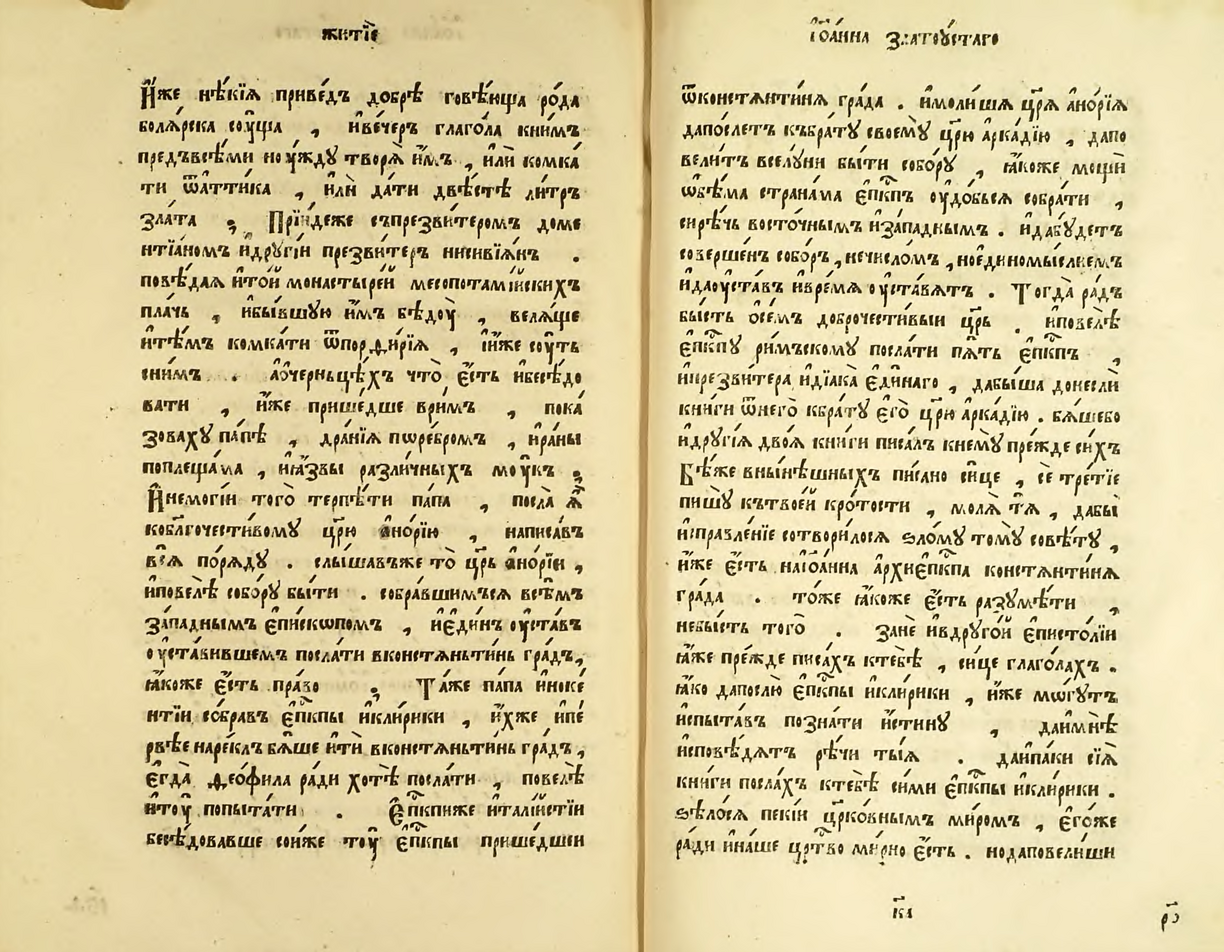 житїе
И҆̀же нѣ́кїѧ приве́дъ добрѣ̀ говѣ́юща ро́да
болѧ́рска соу́ща , иве́черъ глаго́ла книмъ
предъвсѣ́ми но ѹ҆́жду творѧ̀ и҆̀мъ , и҆лѝ комка́
ти ѿа́ттика , и҆лѝ да́ти двѣ́стѣ ли́тръ
зла́та , Прїи́деже съпрезви́теромъ доме
нтїа́номъ идрꙋгі́и презви́теръ нисивїѧ́нъ .
повѣ́даѧ и҆то́и монастыре́и месопота́мїискихъ
пла́чь , ибы́вшую и҆̀мъ бѣ́доу҆ , велѧ́ще
итѣ́мъ комка́ти ѿпорфи́рїѧ , и҆̀же соу́ть
сни́мъ . аѻчерньцѣ́хъ что̀ є҆́сть ибесѣ́до
вати , и҆̀же прише́дше ври́мъ , пока
зовахꙋ па́пѣ , дра́нїѧ поре́бромъ , ира́ны
поплеща́ма , иꙗ҆́звы разли́чныхъ моу́къ ,
И҆немогі́и того̀ терпѣ́ти па́па , посла ѧ҆̀
коблгоче́стивомꙋ цр҃ю а҆но́рїю , написа́въ
всѧ̀ по́рѧдꙋ . слы́шавъже то̀ цр҃ь а҆но́рїи ,
иповелѣ̀ собо́рꙋ бы́ти . собра́вшимъсѧ всѣ́мъ
за́паднымъ є҆пи́скѡпомъ , и҆є҆ди́нъ оу҆ста́въ
оу҆ста́вившемъ посла́ти вконстѧньти́нь гра́дъ ,
ꙗ҆́коже є҆́сть пра́во , Та́же па́па иноке́
нтїи собра́въ є҆пк҃пы икли́рики , и҆̀хже ипе́
рвѣе наре́клъ бѧ́ше итѝ вконстѧньти́нь гра́дъ ,
є҆гда̀ ѳеофи́ла ра́ди хотѣ̀ посла́ти , повелѣ̀
и҆тоу̀ попыта́ти . Є҆пк҃пиже италі́истїи
бесѣ́довавше сои҆́же тоу̀ є҆пк҃пы прише́дшеи
і҆ѻа́нна златоу́стаго
ѿконстѧнти́нѧ гра́да . имоли́ша цр҃ѧ а҆но́рїѧ
дапо́слетъ къбра́тꙋ своемꙋ̀ цр҃ю арка́дїю , дапо
вели́тъ вселꙋ́ни бы́ти собо́рꙋ , ꙗ҆́коже мощѝ
ѡ҆бѣ́ма страна́ма є҆пк҃пъ оу҆до́бьсѧ собра́ти ,
сирѣ́чь восто́чнымъ иза́паднымъ . идабꙋ́детъ
соверше́нъ собо́ръ , нечисло́мъ , ноединомы́слиемъ
идаоу҆ста́въ ивре́мѧ оу҆ста́вѧтъ . Тогда̀ ра́дъ
бы́сть ѻ҆се́мъ доброчести́выи цр҃ь . иповелѣ̀
є҆пк҃пꙋ ри́мъскомꙋ посла́ти пѧ́ть є҆пк҃пъ ,
ипрезви́тера идїа́ка є҆ди́наго , дабы́ша донесли
кни́ги ѿнего̀ кбра́тꙋ є҆го̀ цр҃ю арка́дїю . бѧ́шебо
идрꙋгі́ѧ двоѧ̀ кни́ги писа́лъ кнемꙋ̀ пре́жде си́хъ
Бѣ́же вны́нѣшныхъ пи́сано си́це , сѐ тре́тїе
пишꙋ̀ кътвое́и кро́тости , молѧ̀ тѧ̀ , дабы̀
исправле́нїе сотвори́лосѧ ѕло́мꙋ томꙋ̀ совѣ́тꙋ ,
и҆̀же є҆́сть наі҆ѻа́нна архие҆пк҃па констѧнти́нѧ
гра́да . то́же ꙗ҆́коже є҆́сть разꙋмѣ́ти ,
небы́сть того̀ . занѐ ивдрꙋго́и є҆писто́лїи
ꙗ҆́же пре́жде писа́хъ ктебѣ̀ , си́це глаго́лахъ .
ꙗ҆́ко дапослю̀ є҆пк҃пы икли́рики , и҆̀же мо́гꙋтъ
испыта́въ позна́ти и҆́стинꙋ , даи҆мнѣ̀
исповѣ́дѧтъ рѣ́чи ты́ѧ . даи҆па́ки сїѧ̀
кни́ги посла́хъ ктебѣ̀ си́ми є҆пк҃пы икли́рики .
ѕѣ́лосѧ пекі́и цр҃ко́внымъ ми́ромъ , є҆го́же
ра́ди ина́ше цр҃тво ми́рно є҆́сть . нодаповели́ши
к҃а